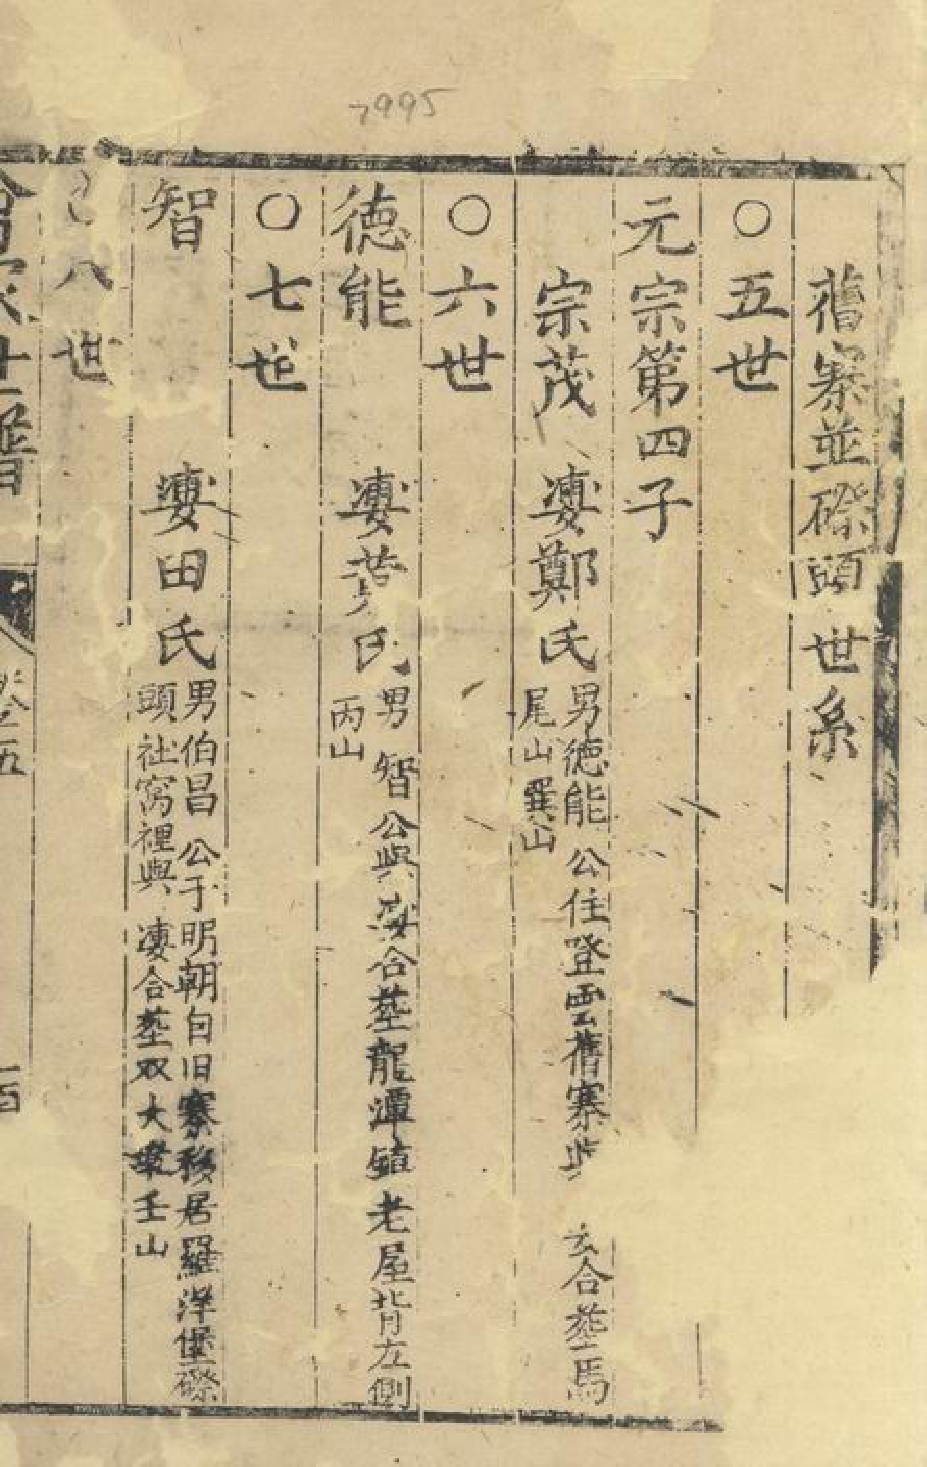 7995
舊寨並磜頭世系
○五世
元宗第四子
宗茂 娶鄭氏 男德能 公住登雲舊寨與 合塟馬
尾山巽山
○六世
德能 娶黄氏 男智 公與娶合塟龍潭鎮老屋背左側
丙山
○七世
智 娶田氏 男伯昌 公于明朝自旧寨移居羅洋堡磜
頭社窩裡與娶合塟双大 壬山
○八世
世譜
卷之五
一百